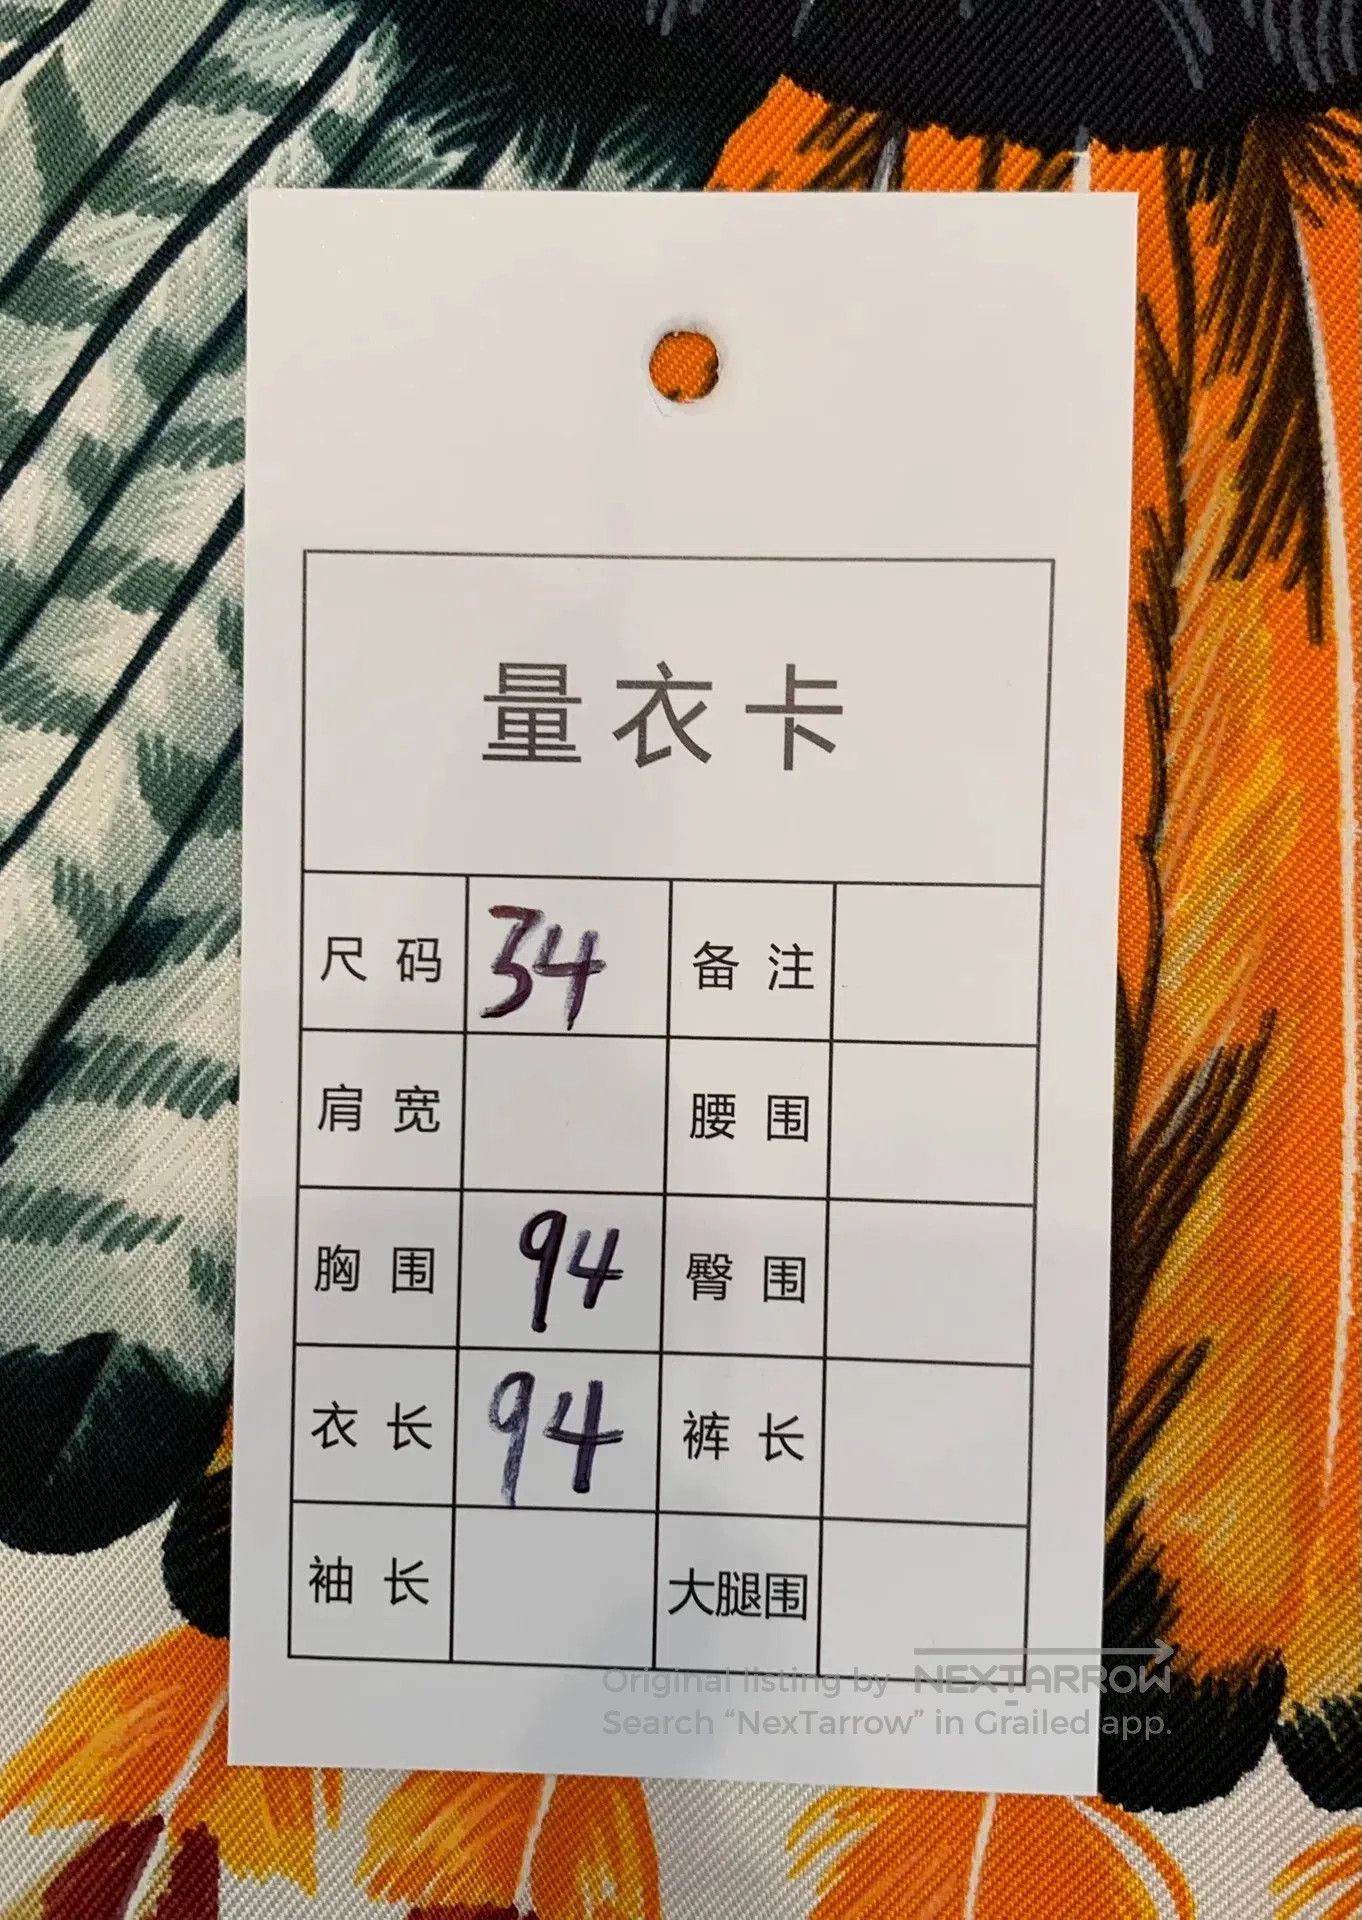 量衣卡
尺码 34 备注
肩宽 腰围
胸围 94 臀围
衣长 94 裤长
袖长 大腿围
Original listing by NEXTARROW
Search “NexTarrow” in Grailed app.